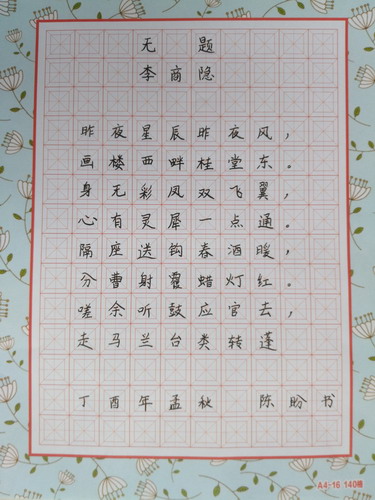 无题
李商隐
昨夜星辰昨夜风，
画楼西畔桂堂东。
身无彩凤双飞翼，
心有灵犀一点通。
隔座送钩春酒暖，
分曹射覆蜡灯红。
嗟余听鼓应官去，
走马兰台类转蓬
丁酉年孟秋 陈盼书
A4-16 140格